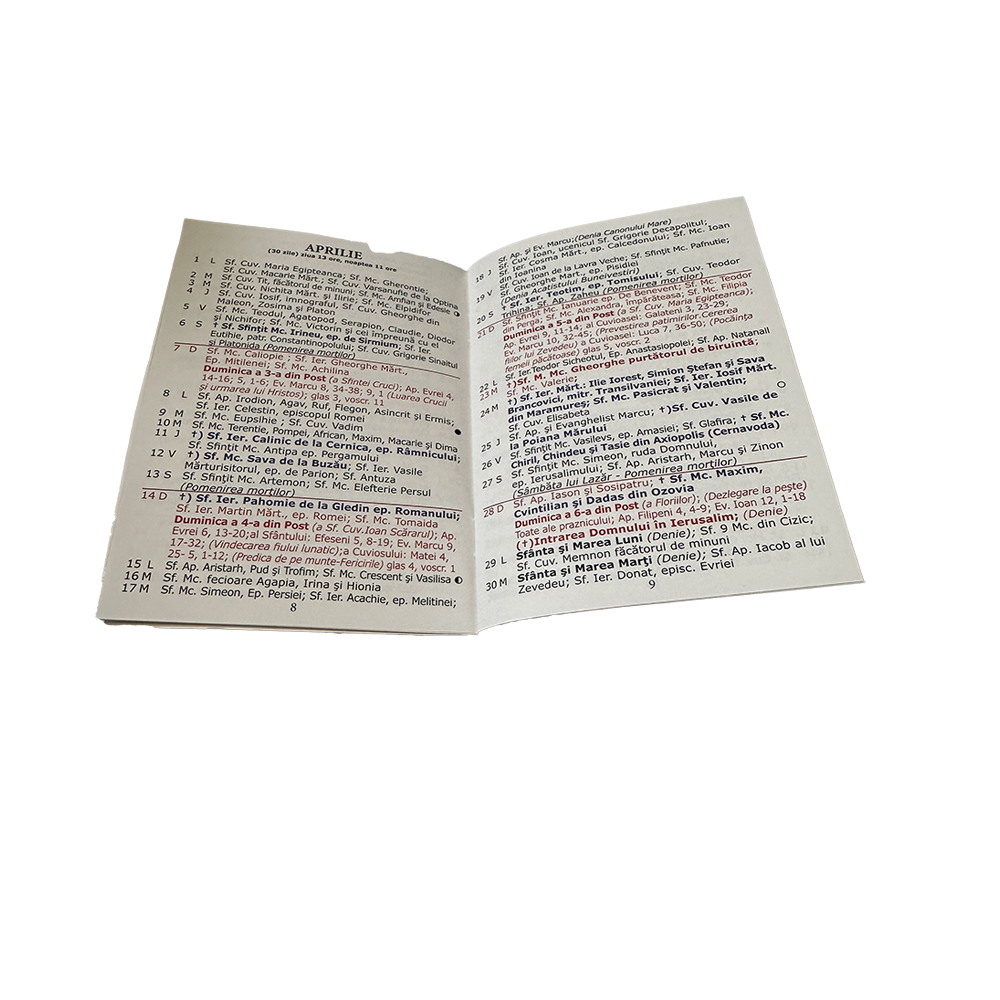 APRILIE
(30 zile) ziua 13 ore, noaptea 11 ore
1 L Sf. Cuv. Maria Egipteanca; Sf. Mc. Gherontie;
2 M Sf. Cuv. Macarie Mărt.; Sf. Cuv. Varsanufie de la Optina
3 M Sf. Cuv. Nichita Mărt. și Ilirie; Sf. Mc. Elpidifor
4 J Sf. Cuv. Tit, făcătorul de minuni; Sf. Mc. Amfian și Edesie
Sf. Cuv. Iosif, imnograful, Sf. Cuv. Gheorghe din
Maleon, Zosima și Platon
5 V Sf. Mc. Teodul, Agatopod, Serapion, Claudie, Diodor
și Nichifor; Sf. Mc. Victorin și cei împreună cu el
6 S † Sf. Sfințit Mc. Irineu, ep. de Sirmium; Sf. Ier.
Eutihie, patr. Constantinopolului; Sf. Cuv. Grigorie Sinaitul
și Platonida (Pomenirea morților)
7 D Sf. Mc. Caliopie ; Sf. Ier. Gheorghe Mărt.,
Ep. Mitilenei; Sf. Mc. Achilina
Duminica a 3-a din Post (a Sfintei Cruci); Ap. Evrei 4,
14-16; 5, 1-6; Ev. Marcu 8, 34-38; 9, 1 (Luarea Crucii
și urmarea lui Hristos); glas 3, voscr. 11
8 L Sf. Ap. Irodion, Agav, Ruf, Flegon, Asincrit și Ermis;
Sf. Ier. Celestin, episcopul Romei
9 M Sf. Mc. Eupsihie ; Sf. Cuv. Vadim
10 M Sf. Mc. Terentie, Pompei, African, Maxim, Macarie și Dima
11 J †) Sf. Ier. Calinic de la Cernica, ep. Râmnicului;
Sf. Sfințit Mc. Antipa ep. Pergamului
12 V †) Sf. Mc. Sava de la Buzău; Sf. Ier. Vasile
Mărturisitorul, ep. de Parion; Sf. Antuza
13 S Sf. Sfințit Mc. Artemon; Sf. Mc. Elefterie Persul
(Pomenirea morților)
14 D †) Sf. Ier. Pahomie de la Gledin ep. Romanului;
Sf. Ier. Martin Mărt., ep. Romei; Sf. Mc. Tomaida
Duminica a 4-a din Post (a Sf. Cuv.Ioan Scărarul); Ap.
Evrei 6, 13-20;al Sfântului: Efeseni 5, 8-19; Ev. Marcu 9,
17-32; (Vindecarea fiului lunatic);a Cuviosului: Matei 4,
25- 5, 1-12; (Predica de pe munte-Fericirile) glas 4, voscr. 1
15 L Sf. Ap. Aristarh, Pud și Trofim; Sf. Mc. Crescent și Vasilisa
16 M Sf. Mc. fecioare Agapia, Irina și Hionia
17 M Sf. Mc. Simeon, Ep. Persiei; Sf. Ier. Acachie, ep. Melitinei;
8
Sf. Ap. și Ev. Marcu;(Denia Canonului Mare)
18 J Sf. Cuv. Ioan, ucenicul Sf. Grigorie Decapolitul;
Sf. Ier. Cosma Mărt., ep. Calcedonului; Sf. Mc. Ioan
din Ioanina
19 V Sf. Cuv. Ioan de la Lavra Veche; Sf. Sfințit Mc. Pafnutie;
Sf. Gheorghe Mărt., ep. Pisidiei
(Denia Acatistului Buneivestiri)
20 S Sf. Ier. Teotim, ep. Tomisului; Sf. Cuv. Teodor
Trihina; Sf. Ap. Zaheu (Pomenirea morților)
21 D Sf. Sfințit Mc. Ianuarie ep. De Benevent; Sf. Mc. Teodor
din Perga; Sf. Mc. Alexandra, împărăteasa; Sf. Mc. Filipia
Duminica a 5-a din Post (a Sf. Cuv. Maria Egipteanca);
Ap. Evrei 9, 11-14; al Cuvioasei: Galateni 3, 23-29;
Ev. Marcu 10, 32-45; (Prevestirea patimirilor.Cererea
fiilor lui Zevedeu) a Cuvioasei: Luca 7, 36-50; (Pocăința
femeii păcătoase) glas 5, voscr. 2
22 L Sf. Ier.Teodor Sicheotul, Ep. Anastasiopolei; Sf. Ap. Natanail
23 M †)Sf. M. Mc. Gheorghe purtătorul de biruință;
Sf. Mc. Valerie;
24 M †) Sf. Ier. Mărt.: Ilie Iorest, Simion Ștefan și Sava
Brancovici, mitr. Transilvaniei; Sf. Ier. Iosif Mărt.
din Maramureș; Sf. Mc. Pasicrat și Valentin;
Sf. Cuv. Elisabeta
25 J Sf. Ap. și Evanghelist Marcu; †)Sf. Cuv. Vasile de
la Poiana Mărului
26 V Sf. Sfințit Mc. Vasilevs, ep. Amasiei; Sf. Glafira; † Sf. Mc.
Chiril, Chindeu și Tasie din Axiopolis (Cernavoda)
27 S Sf. Sfințit Mc. Simeon, ruda Domnului,
ep. Ierusalimului; Sf. Ap. Aristarh, Marcu și Zinon
(Sâmbăta lui Lazăr - Pomenirea morților)
28 D Sf. Ap. Iason și Sosipatru; † Sf. Mc. Maxim,
Cvintilian și Dadas din Ozovia
Duminica a 6-a din Post (a Floriilor); (Dezlegare la pește)
Toate ale praznicului; Ap. Filipeni 4, 4-9; Ev. Ioan 12, 1-18
(†)Intrarea Domnului în Ierusalim; (Denie)
29 L Sfânta și Marea Luni (Denie); Sf. 9 Mc. din Cizic;
Sf. Cuv. Memnon făcătorul de minuni
30 M Sfânta și Marea Marți (Denie); Sf. Ap. Iacob al lui
Zevedeu; Sf. Ier. Donat, episc. Evriei
9